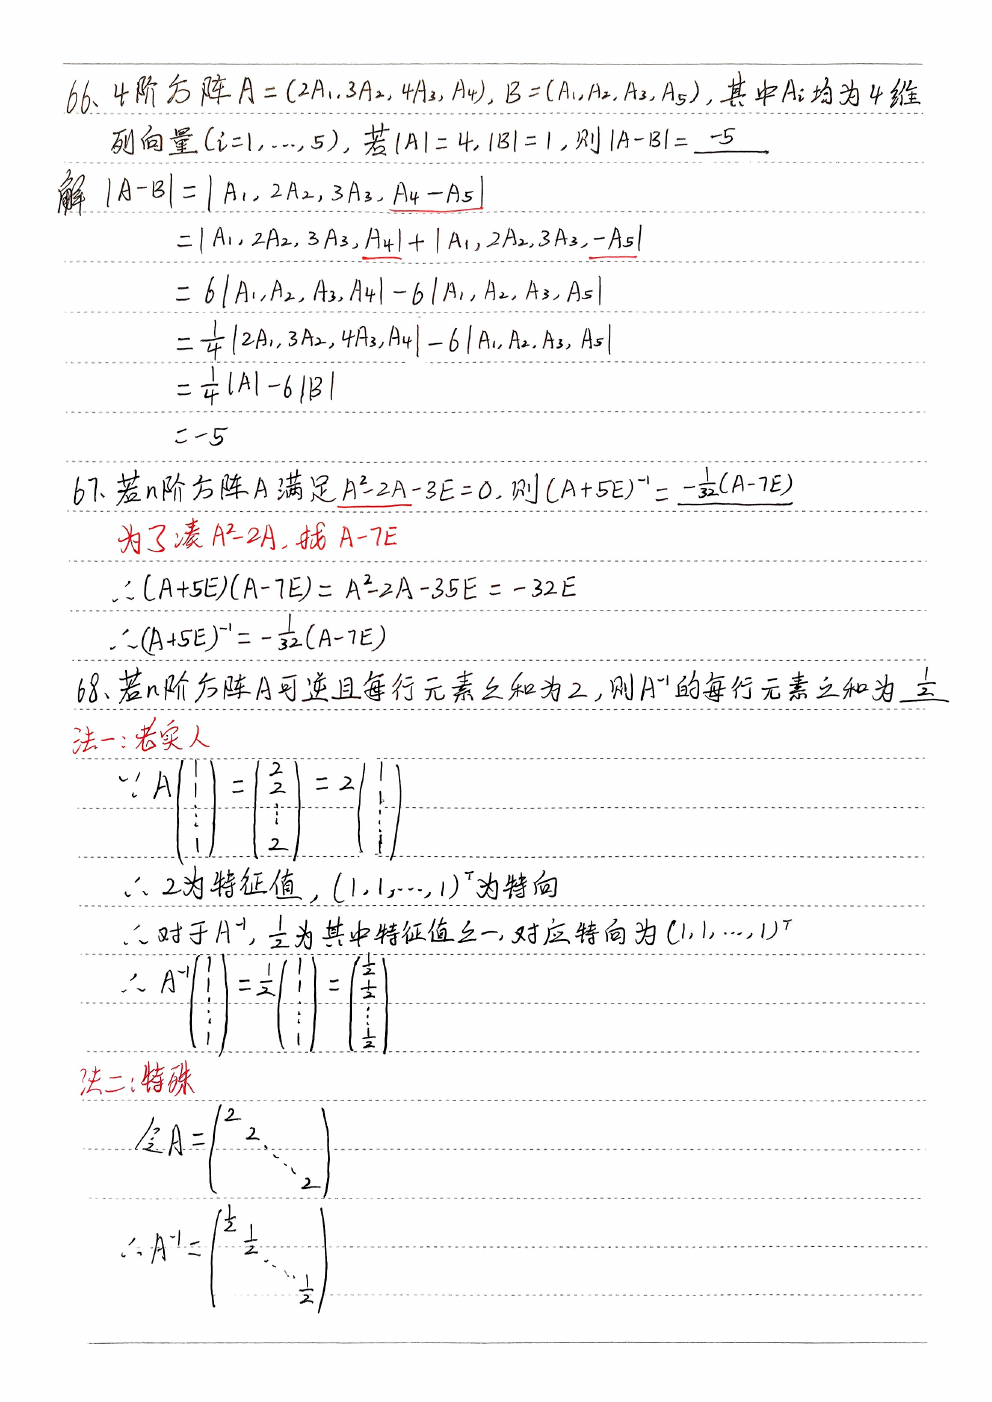 66、4阶方阵A=(2A₁,3A₂,4A₃,A₄),B=(A₁,A₂,A₃,A₅),其中Aᵢ均为4维
列向量(i=1,…,5),若|A|=4,|B|=1,则|A-B|=-5
解 |A-B|=|A₁,2A₂,3A₃,A₄-A₅|
=|A₁,2A₂,3A₃,A₄|+|A₁,2A₂,3A₃,-A₅|
=6|A₁,A₂,A₃,A₄|-6|A₁,A₂,A₃,A₅|
=1/4|2A₁,3A₂,4A₃,A₄|-6|A₁,A₂,A₃,A₅|
=1/4|A|-6|B|
=-5
67、若n阶方阵A满足A²-2A-3E=0,则(A+5E)⁻¹=-1/32(A-7E)
为了凑A²-2A,找A-7E
∴(A+5E)(A-7E)=A²-2A-35E=-32E
∴(A+5E)⁻¹=-1/32(A-7E)
68、若n阶方阵A可逆且每行元素之和为2,则A⁻¹的每行元素之和为1/2
法一:老实人
∵A(1 1 ⋮ 1)=(2 2 ⋮ 2)=2(1 1 ⋮ 1)
∴2为特征值,(1,1,…,1)ᵀ为特向
∴对于A⁻¹,1/2为其中特征值之一,对应特向为(1,1,…,1)ᵀ
∴A⁻¹(1 1 ⋮ 1)=1/2(1 1 ⋮ 1)=(1/2 1/2 ⋮ 1/2)
法二:特殊
令A=(2 2 ⋱ 2)
∴A⁻¹=(1/2 1/2 ⋱ 1/2)